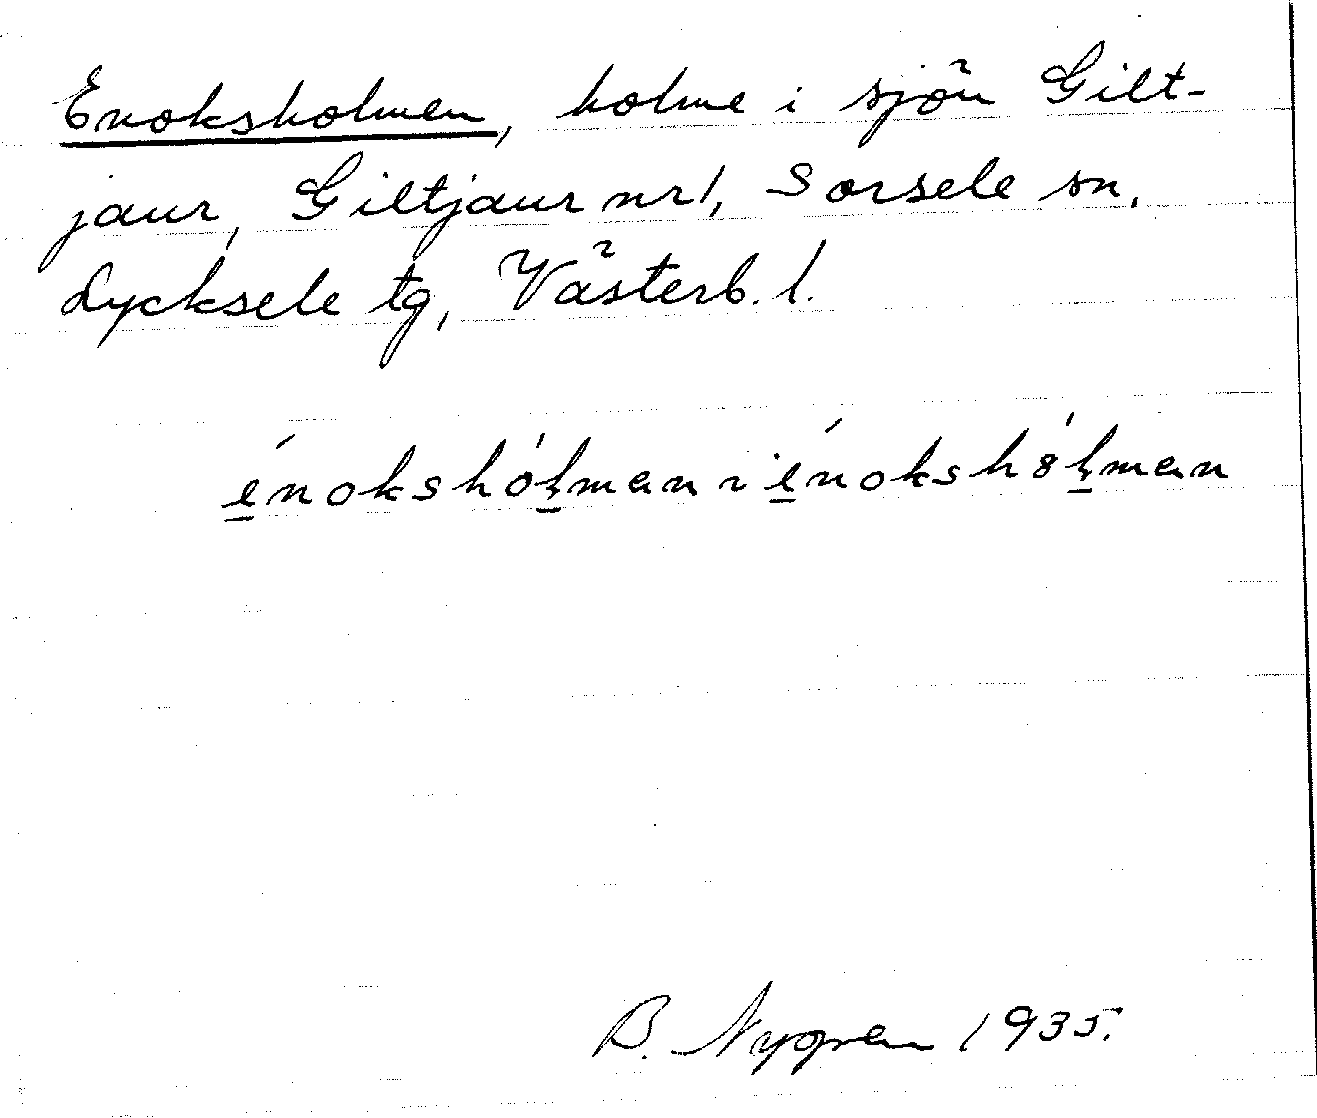 Enoksholmen, holme i sjön Gilt-
jaur, Giltjaur nr 1, Sorsele sn,
Lycksele tg, Västerb. l.
énokshólman ~ i énokshólman
B. Nygren 1935.